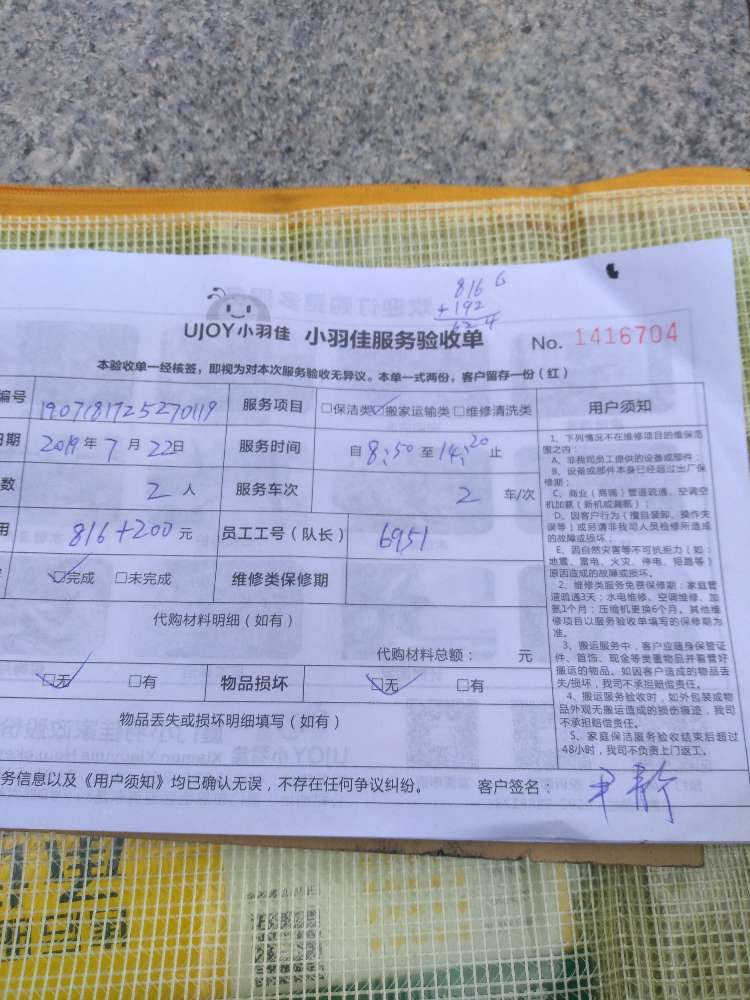 816
+192
UJOY小羽佳 小羽佳服务验收单 No. 1416704
本验收单一经核签，即视为对本次服务验收无异议。本单一式两份，客户留存一份（红）
编号 1907181725270119 服务项目 □保洁类 ☑搬家运输类 □维修清洗类 用户须知
日期 2019年7月22日 服务时间 自8:50至14:20止
数 2人 服务车次 2 车/次
用 816+200元 员工工号（队长） 6951
☑完成 □未完成 维修类保修期
代购材料明细（如有）
代购材料总额： 元
☑无 □有 物品损坏 ☑无 □有
物品丢失或损坏明细填写（如有）
务信息以及《用户须知》均已确认无误，不存在任何争议纠纷。 客户签名：尹静
1、下列情况不在维修项目的维保范
围之内：
A、非我司员工提供的设备或部件；
B、设备或部件本身已经超过出厂保
修期；
C、商业（商铺）管道疏通、空调空
机加氨（新机或漏氨）；
D、因客户行为（擅自装卸、操作失
误等）或另请非我司人员检修所造成
的故障或损坏；
E、因自然灾害等不可抗拒力（如：
地震、雷电、火灾、停电、短路等）
原因造成的故障或损坏。
2、维修类服务免费保修期：家庭管
道疏通3天；水电维修、空调维修、加
氨1个月；压缩机更换6个月。其他维
修项目以服务验收单填写的保修期为
准。
3、搬运服务中，客户应随身保管证
件、首饰、现金等贵重物品并看管好
搬运的物品。如因客户造成的物品丢
失/损坏，我司不承担赔偿责任。
4、搬运服务验收时，如外包装或物
品外观无搬运造成的损伤痕迹，我司
不承担赔偿责任。
5、家庭保洁服务验收结束后超过
48小时，我司不负责上门返工。